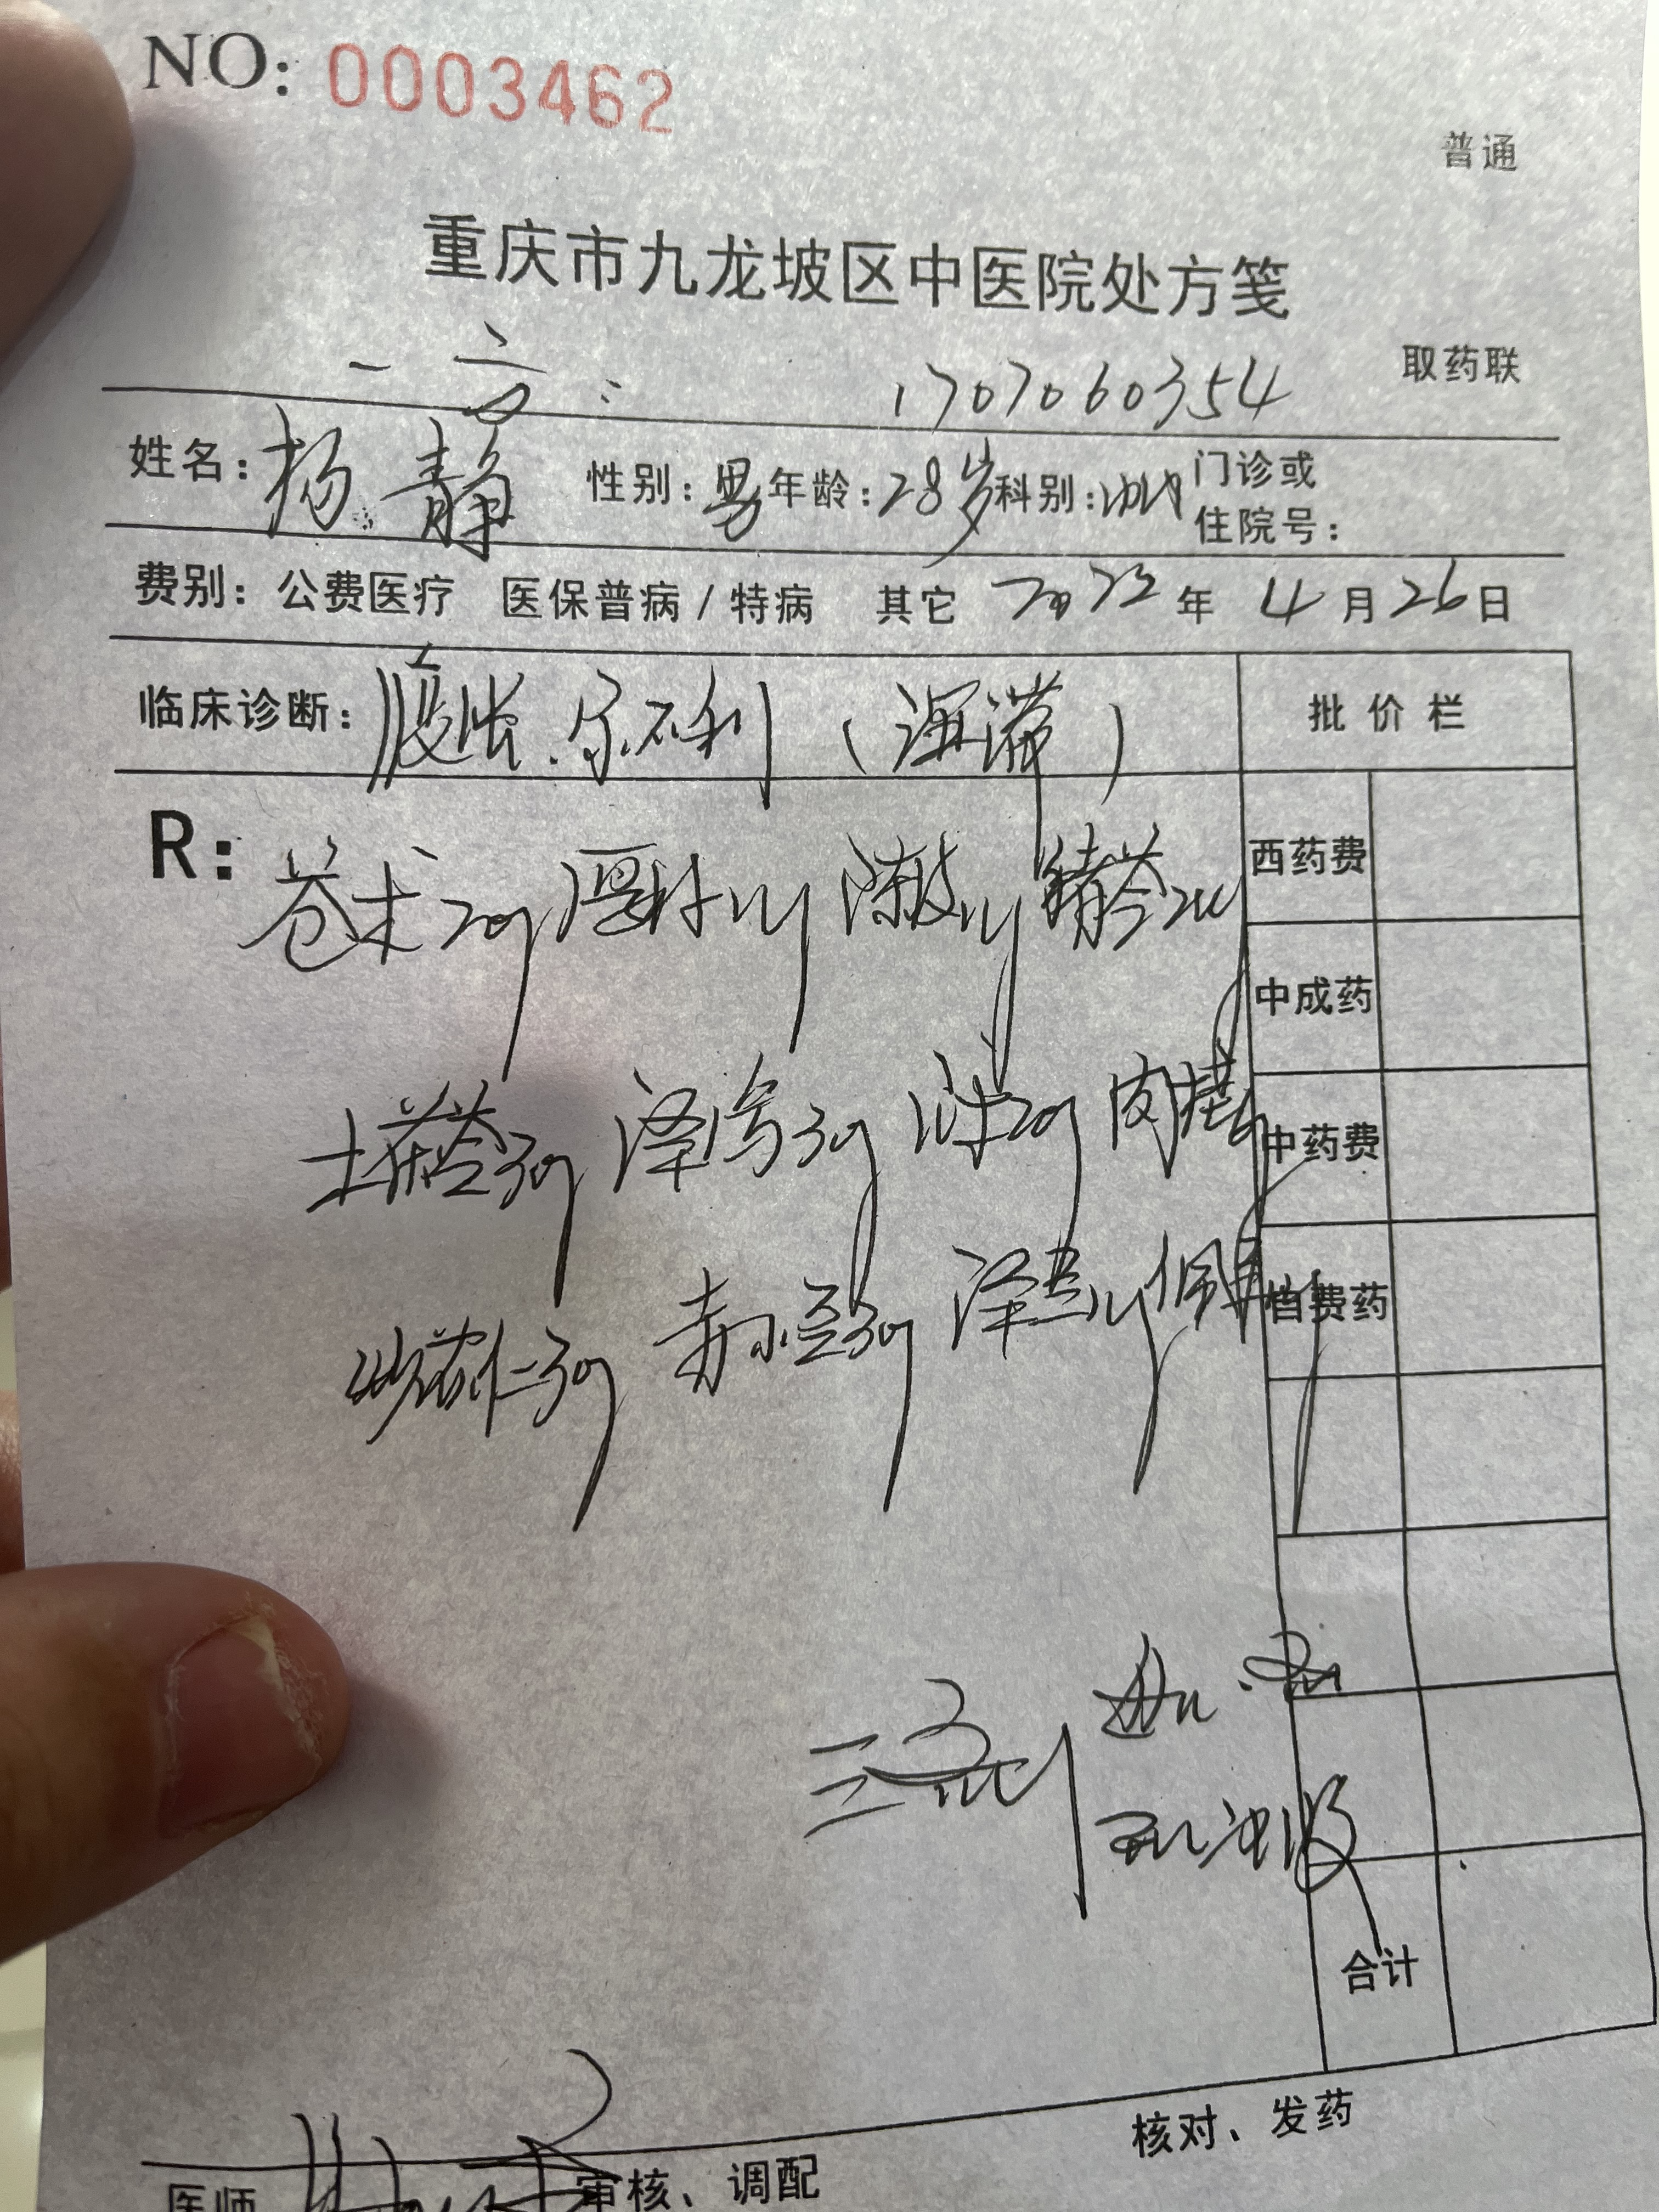 NO: 0003462
普通
重庆市九龙坡区中医院处方笺
取药联
一方: 1707060354
姓名: 杨静 性别: 男 年龄: 28岁 科别: 门诊或
住院号:
费别: 公费医疗 医保普病/特病 其它 2022年 4月26日
临床诊断: 腹胀.尿不利 (湿滞) 批价栏
R: 苍术20g 厚朴15g 陈皮15g 猪苓20g 西药费
中成药
土茯苓30g 泽泻30g 白术20g 肉桂 中药费
炒苡仁30g 赤小豆30g 泽兰15g 佩兰 自费药
三剂
合计
核对、发药
医师 审核、调配